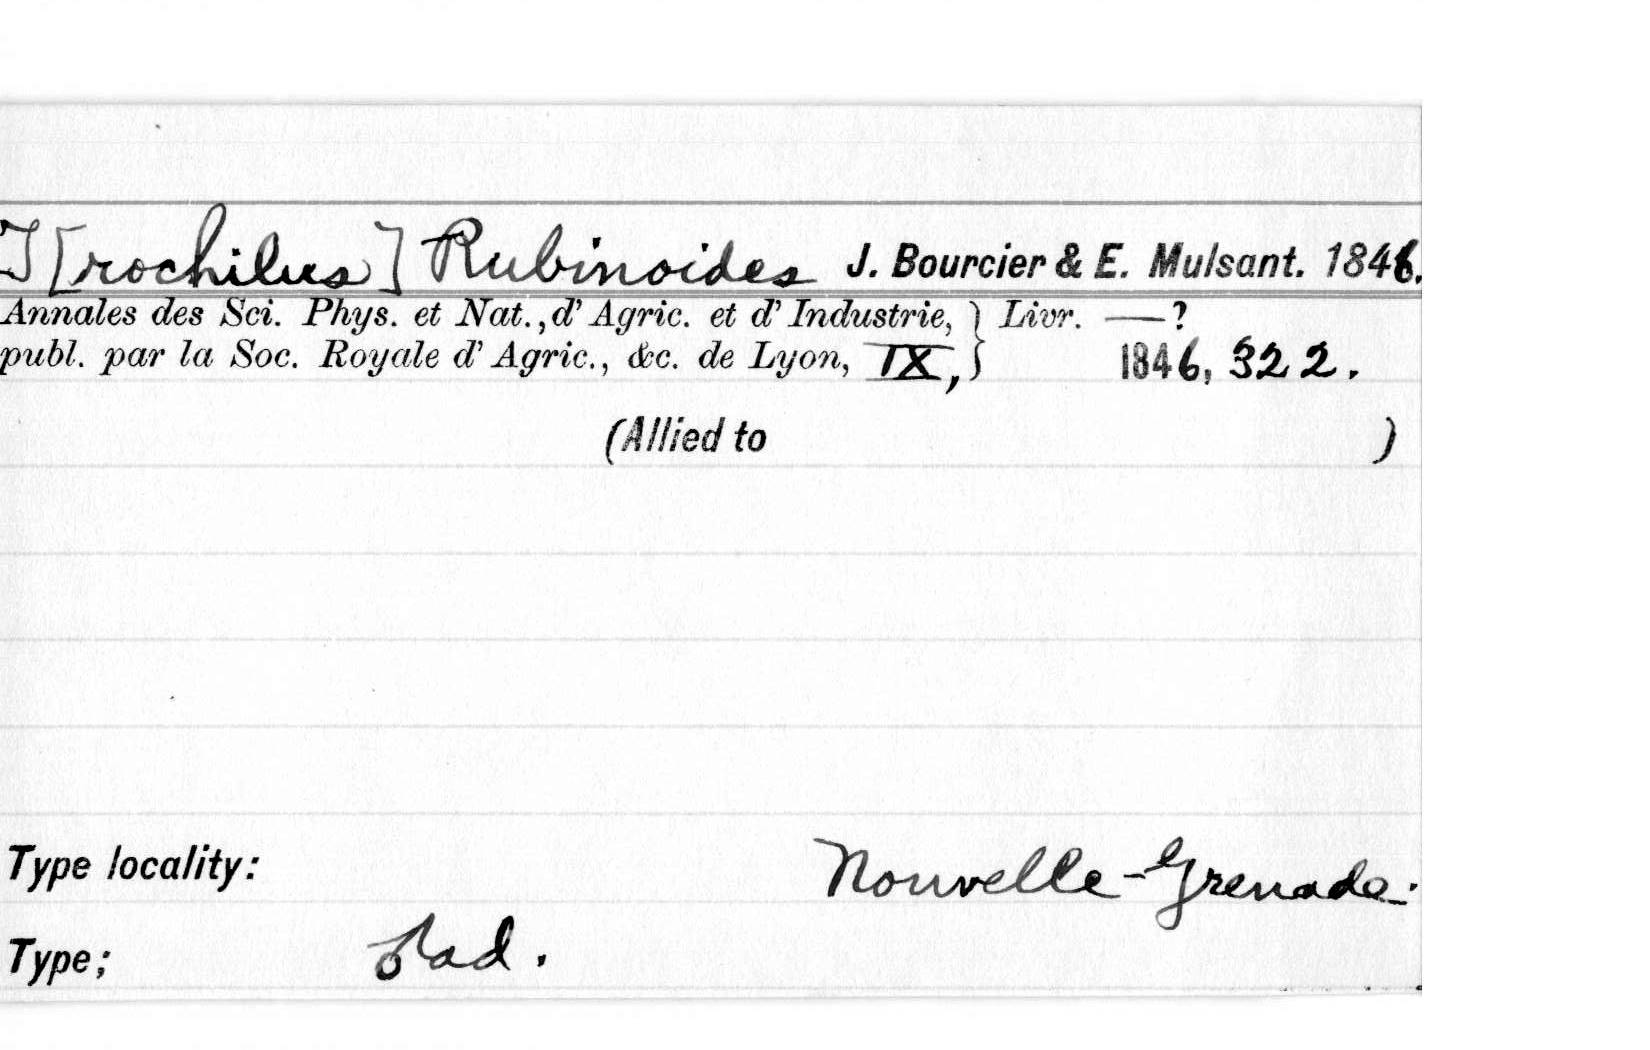 T[rochilus] Rubinoides J. Bourcier & E. Mulsant. 1846.
Annales des Sci. Phys. et Nat., d' Agric. et d' Industrie, } Livr. —?
publ. par la Soc. Royale d' Agric., &c. de Lyon, IX, } 1846, 322.
(Allied to )
Type locality: Nouvelle-Grenade.
Type; ♂ad.